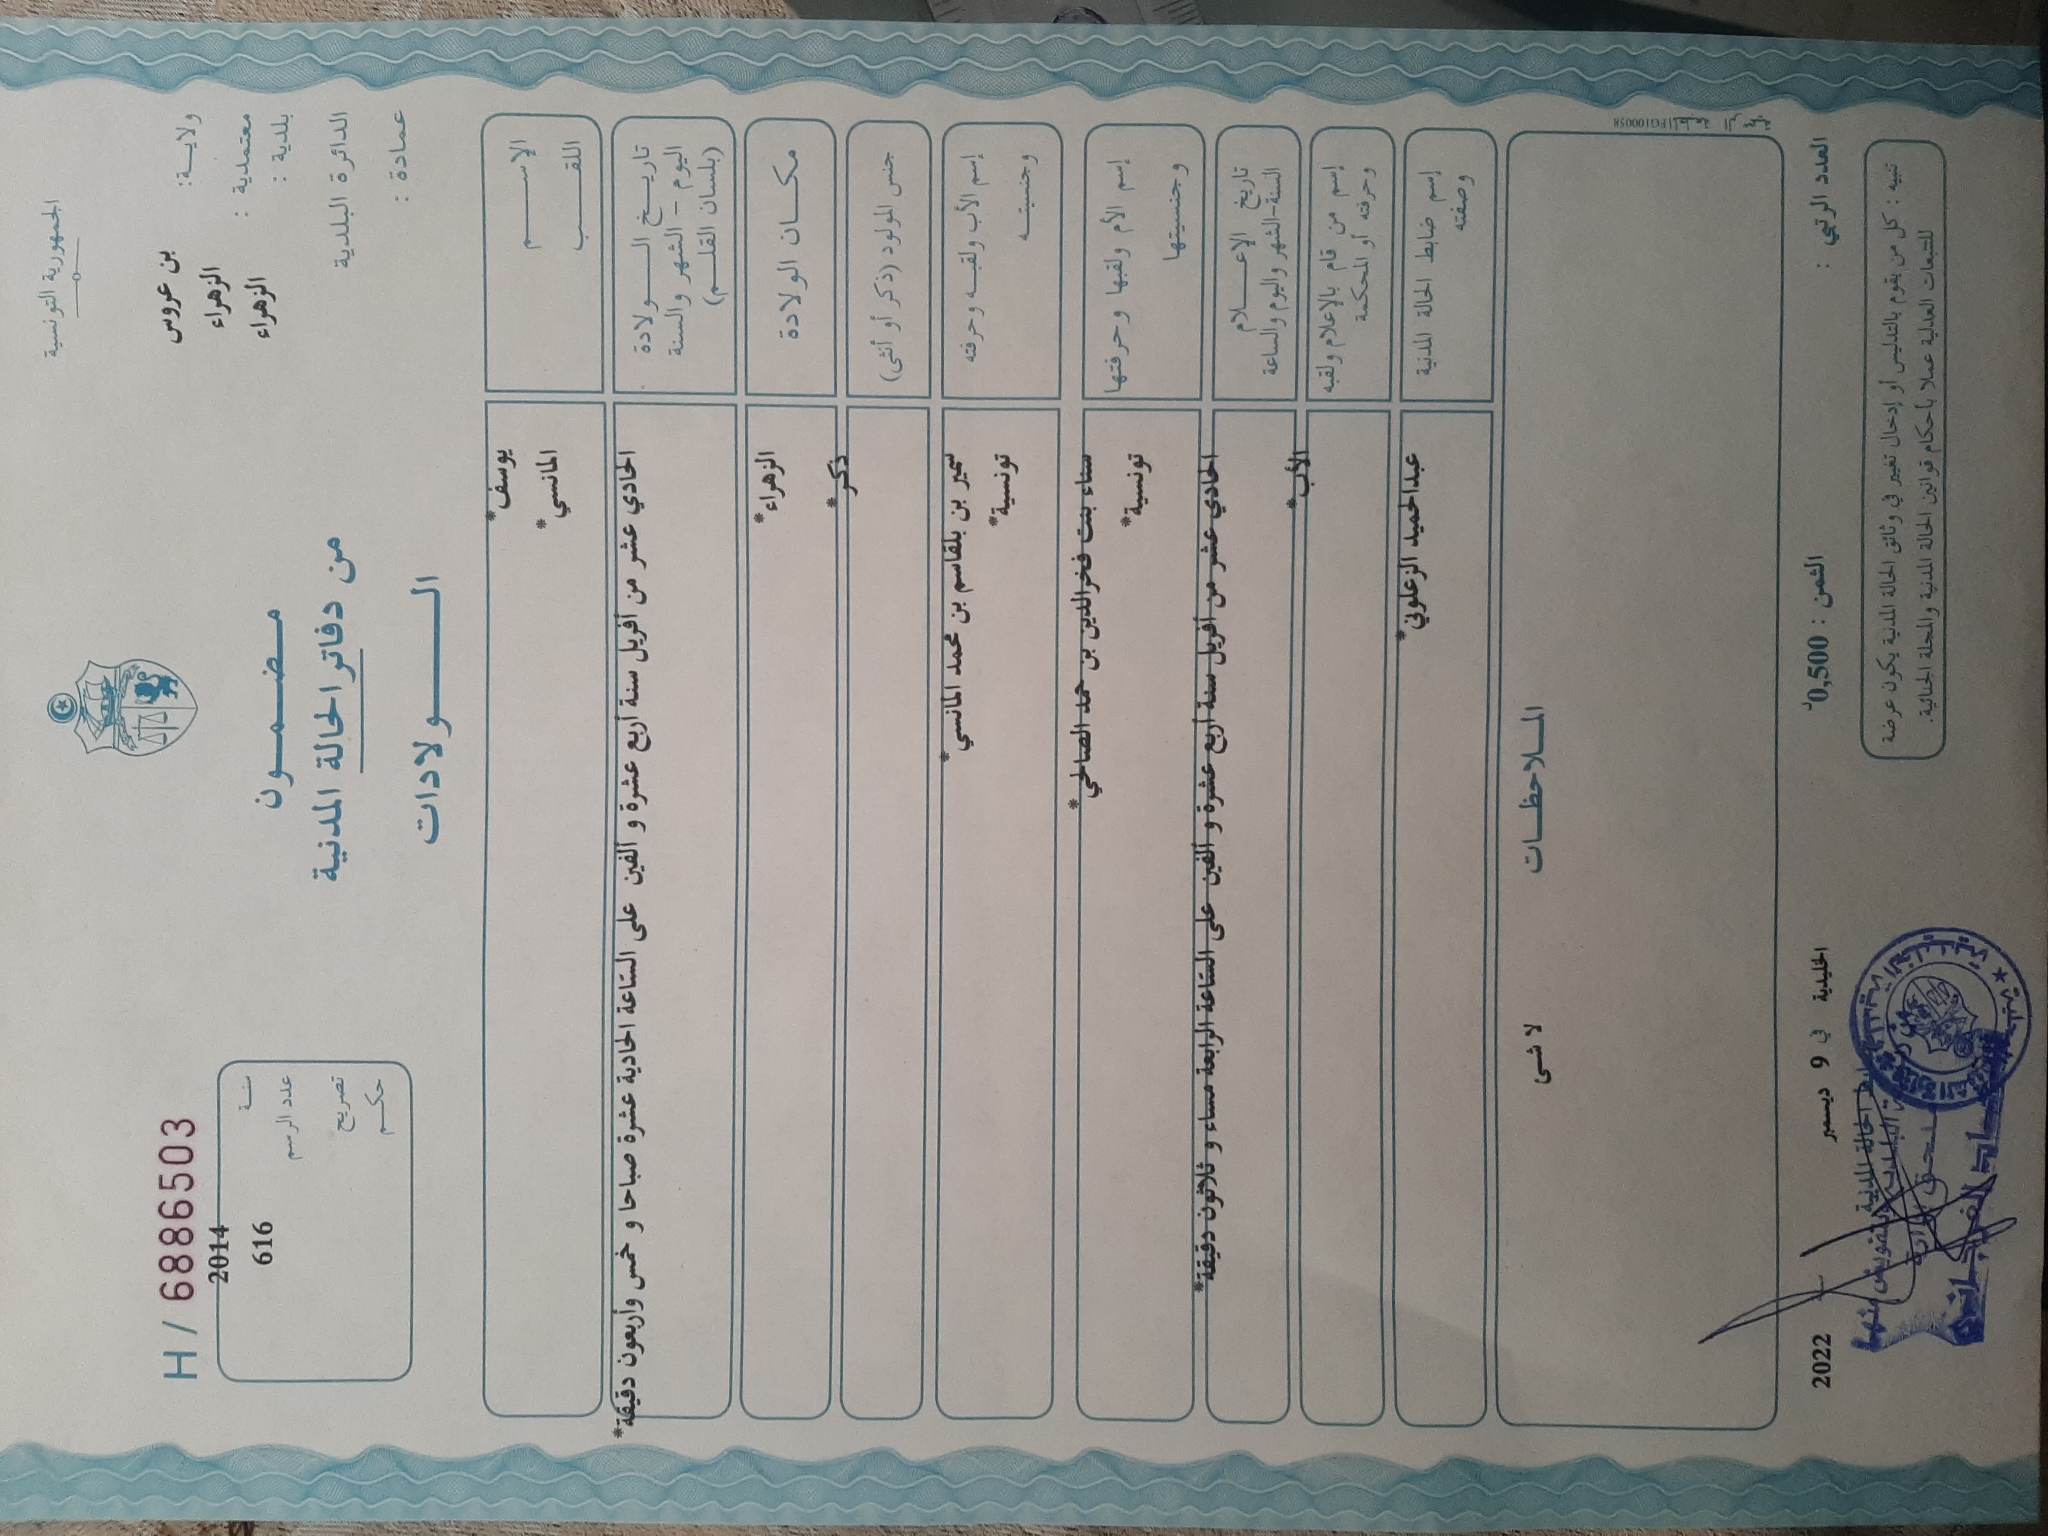 الجمهورية التونسية
ولاية: بن عروس
معتمدية : الزهراء
بلدية : الزهراء
الدائرة البلدية
عمادة :
H / 6886503
سنة 2014
عدد الرسم 616
تصريح
حكم
مضمون
من دفاتر الحالة المدنية
الولادات
الإسم يوسف*
اللقب المانسي*
تاريخ الولادة
اليوم - الشهر والسنة
(بلسان القلم)
الحادي عشر من أفريل سنة أربع عشرة و ألفين على الساعة الحادية عشرة صباحا و خمس وأربعون دقيقة*
مكان الولادة الزهراء*
جنس المولود (ذكر أو أنثى) ذكر*
إسم الأب ولقبه وحرفته سمير بن بلقاسم بن محمد المانسي*
وجنسيته تونسية*
إسم الأم ولقبها وحرفتها سناء بنت فخرالدين بن حمد الصالحي*
وجنسيتها تونسية*
تاريخ الإعلام
السنة-الشهر واليوم والساعة
الحادي عشر من أفريل سنة أربع عشرة و ألفين على الساعة الرابعة مساء و ثلاثون دقيقة*
إسم من قام بالإعلام ولقبه
وحرفته أو المحكمة
الأب*
إسم ضابط الحالة المدنية
وصفته
عبدالحميد الزعلوني*
الملاحظات
لا شئ
PG100058
العدد الرتبي :
الثمن : 0,500د
الخليدية في 9 ديسمبر 2022
تنبيه : كل من يقوم بالتدليس أو إدخال تغيير في وثائق الحالة المدنية يكون عرضة
للتتبعات العدلية عملا بأحكام قوانين الحالة المدنية والمجلة الجنائية.